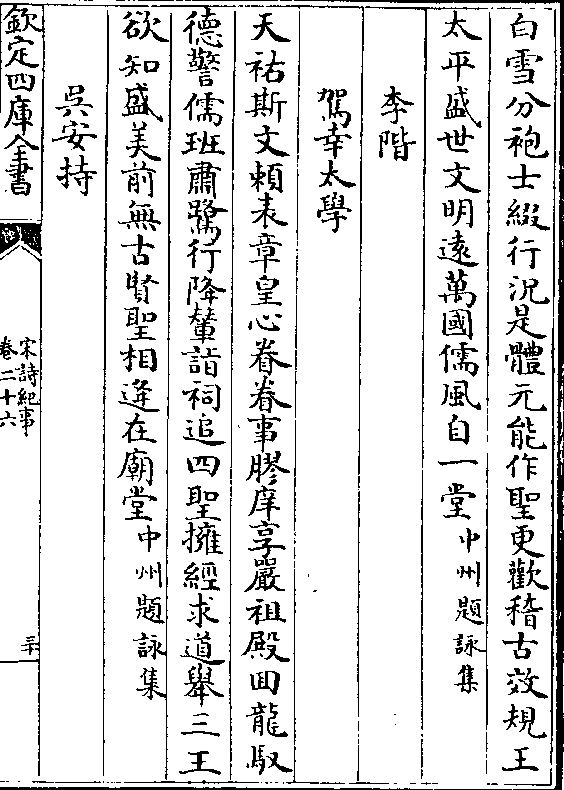 白雪分袍士綴行況是體元能作聖更歡稽古效規王
太平盛世文明遠萬國儒風自一堂中州題詠集
李階
駕幸太學
天祐斯文賴表章皇心眷眷事膠庠享嚴祖殿回龍馭
德警儒班肅鷺行降輦詣祠追四聖擁經求道舉三王
欲知盛美前無古賢聖相逢在廟堂中州題詠集
吳安持
欽定四庫全書
宋詩紀事
卷二十六
三十